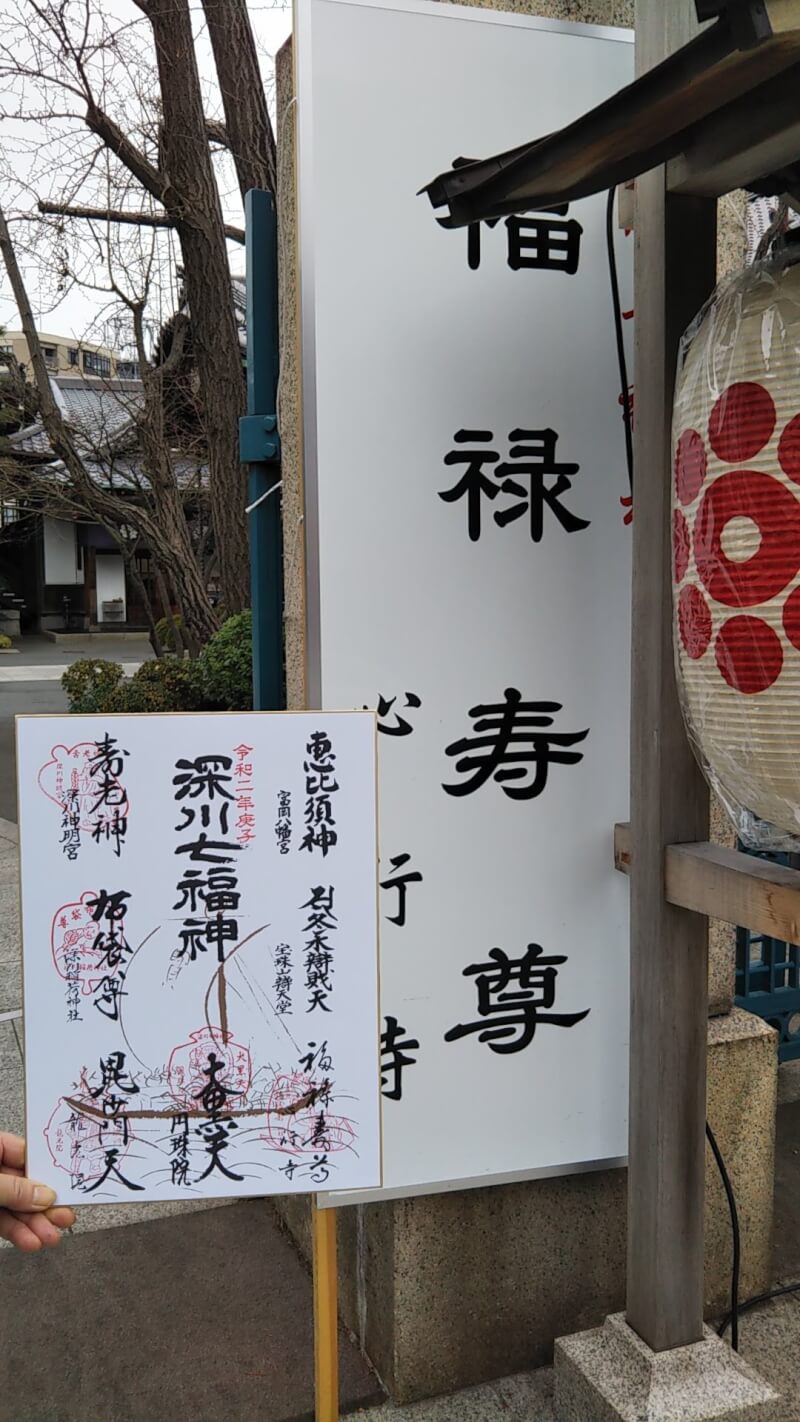 福禄寿尊
心行寺
令和二年庚子
深川七福神
恵比須神
富岡八幡宮
冬木辯財天
宝珠山辨天堂
福禄寿尊
心行寺
大黒天
円珠院
寿老神
深川神明宮
布袋尊
深川稲荷神社
毘沙門天
龍光院